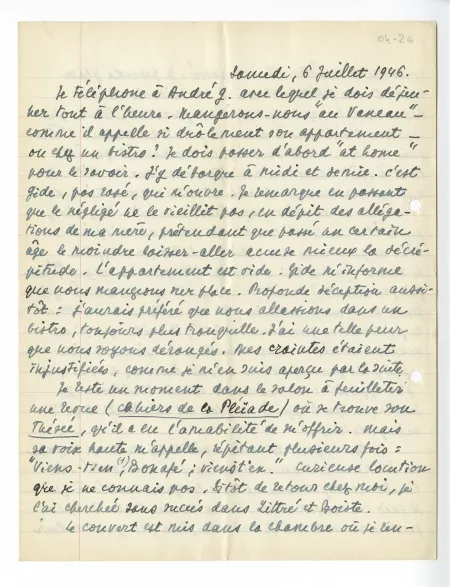 04-26
Samedi, 6 Juillet 1946.
Je téléphone à André G. avec lequel je dois déjeu-
ner tout à l'heure. Mangerons-nous "au Vaneau" -
comme il appelle si drôlement son appartement -
ou chez un bistro? Je dois passer d'abord "at home"
pour le savoir. J'y débarque à midi et demie. C'est
Gide, pas rasé, qui m'ouvre. Je remarque en passant
que le négligé ne le vieillit pas, en dépit des alléga-
tions de ma mère, prétendant que passé un certain
âge le moindre laisser-aller accuse mieux la décré-
pitude. L'appartement est vide. Gide m'informe
que nous mangeons sur place. Profonde déception aussi-
tôt : j'aurais préféré que nous allassions dans un
bistro, toujours plus tranquille. J'ai une telle peur
que nous soyons dérangés. Mes craintes étaient
injustifiées, comme je m'en suis aperçu par la suite.
Je reste un moment dans le salon à feuilleter
une revue (Cahiers de la Pléiade) où se trouve son
Thésée, qu'il a eu l'amabilité de m'offrir. Mais
sa voix haute m'appelle, répétant plusieurs fois :
"Viens-t'en (1), Bonafé ; viens t'en." Curieuse locution
que je ne connais pas. Sitôt de retour chez moi, je
l'ai cherchée sans succès dans Littré et Boiste.
Le couvert est mis dans la chambre où je ren-